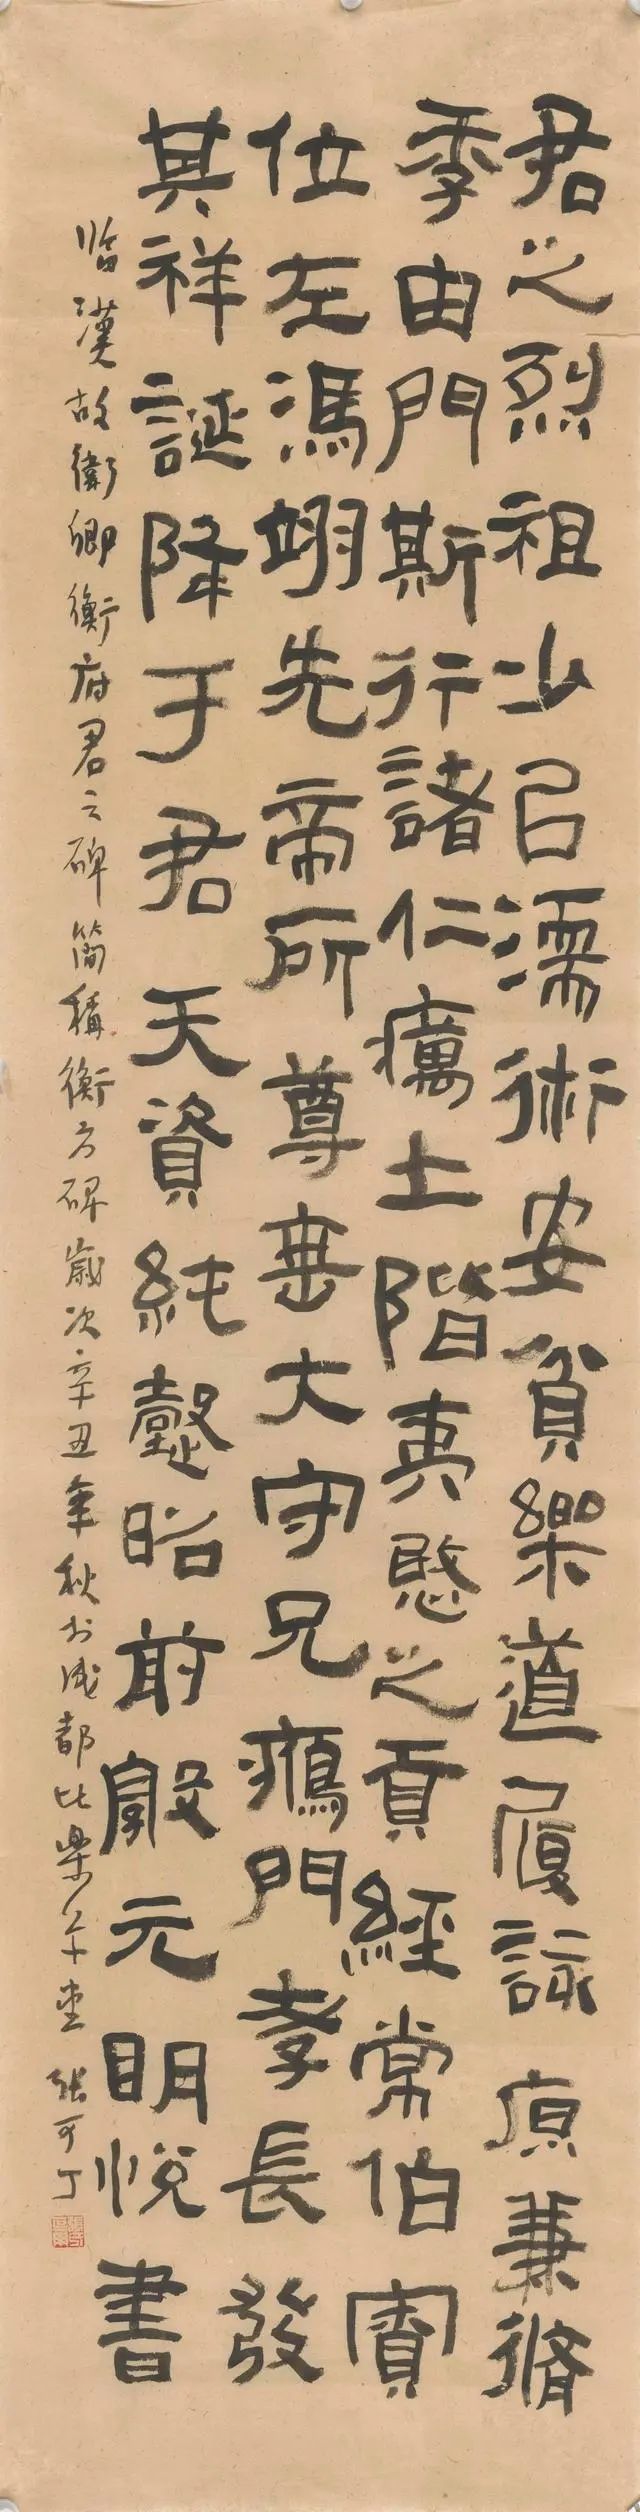 君之烈祖少以濡術安貧樂道履該顔原兼脩
季由聞斯行諸仁癘土階夷愍之貢經常伯寮
位左馮翊先帝所尊垂大守兄癘門孝長發
其祥誕降于君天資純懿昭前之美元明悅書
臨漢故衛卿衡府君之碑簡稱衡方碑歲次辛丑年秋於成都比樂年堂張可丁